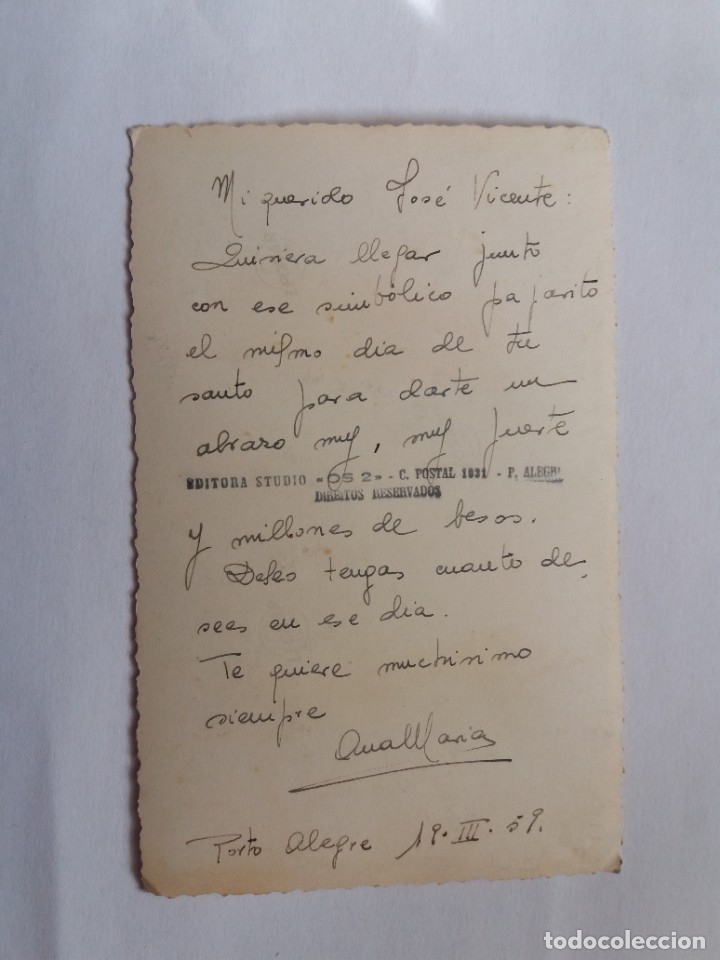 Mi querido José Vicente:
Quisiera llegar junto
con ese simbólico pajarito
el mismo dia de tu
santo para darte un
abrazo muy, muy fuerte
EDITORA STUDIO «OS 2» - C. POSTAL 1931 - P. ALEGRE
DIREITOS RESERVADOS
y millones de besos.
Deseo tengas cuanto de
sees en ese dia.
Te quiere muchisimo
siempre
Ana Maria
Porto Alegre 19-III-59.
todocoleccion